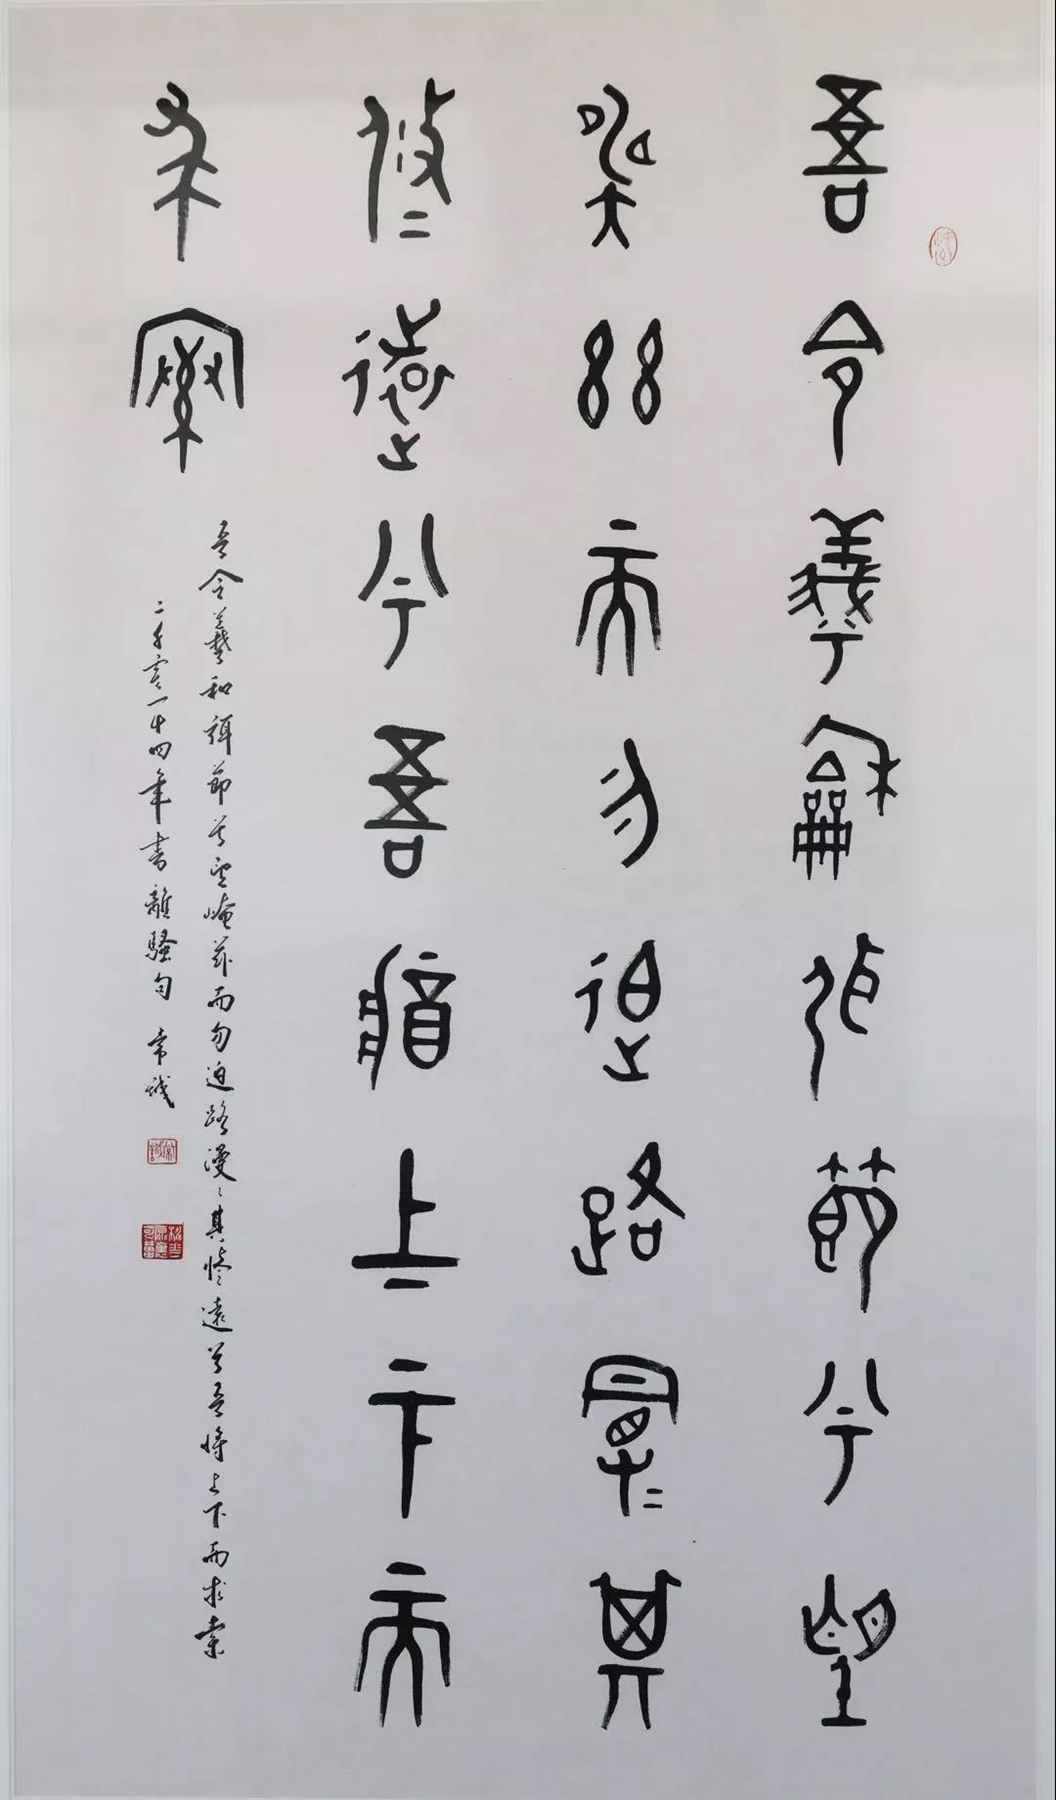 吾令羲和弭節兮望
奄兹而勿迫路曼=其
攸=遠兮吾將上下而
求索
吾令羲和弭節兮望崦茲而勿迫路漫〻其修遠兮吾將上下而求索
二千零一十四年書離騷句 常誠